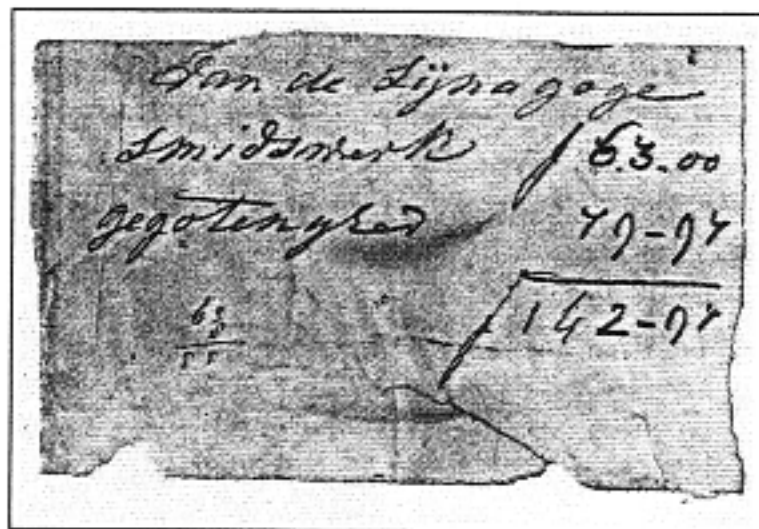 Aan de Sijnagoge
smidswerk ƒ 63.00
gegoten yzer 79-97
ƒ 142-97